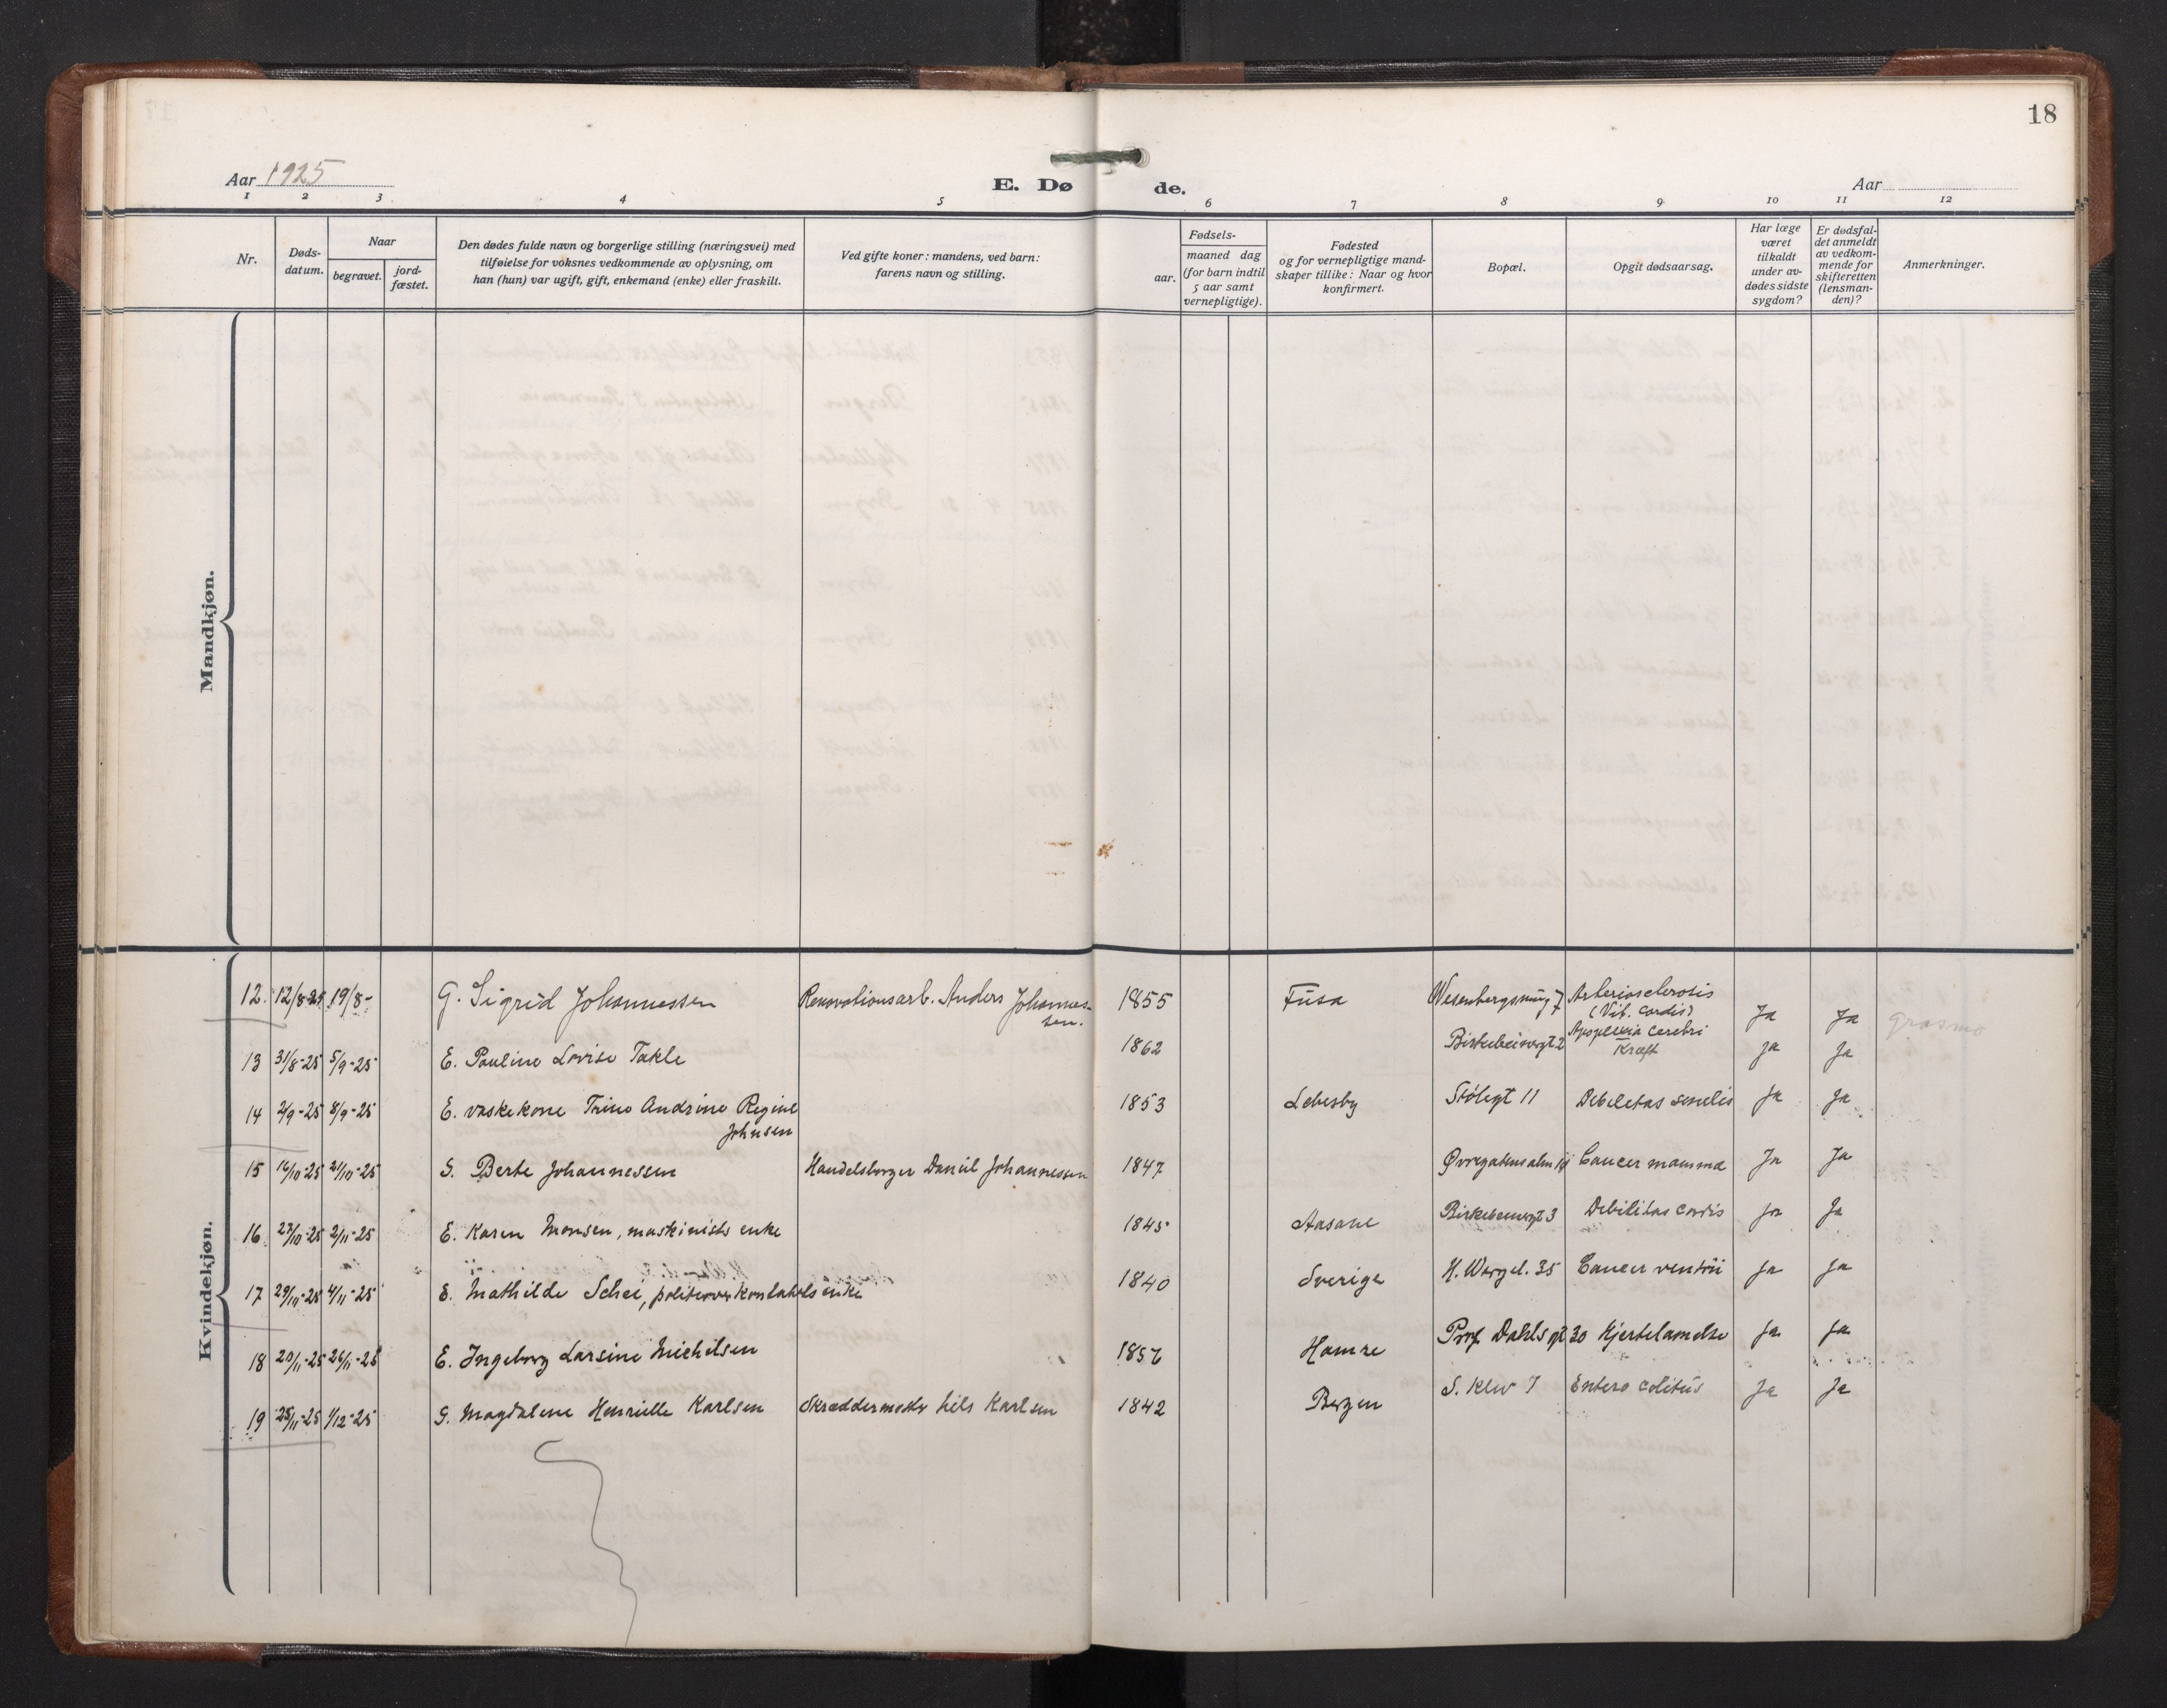 18
Aar 1925
E. Dø de.
Aar
1 2 3 4 5 6 7 8 9 10 11 12
Nr.
Døds-
datum.
Naar
begravet.
jord-
fæstet.
Den dødes fulde navn og borgerlige stilling (næringsvei) med
tilføielse for voksnes vedkommende av oplysning, om
han (hun) var ugift, gift, enkemand (enke) eller fraskilt.
Ved gifte koner: mandens, ved barn:
farens navn og stilling.
Fødsels-
aar.
maaned dag
(for barn indtil
5 aar samt
vernepligtige).
Fødested
og for vernepligtige mand-
skaper tillike: Naar og hvor
konfirmert.
Bopæl.
Opgit dødsaarsag.
Har læge
været
tilkaldt
under av-
dødes sidste
sygdom?
Er dødsfal-
det anmeldt
av vedkom-
mende for
skifteretten
(lensman-
den)?
Anmerkninger.
Mandkjøn.
Kvindekjøn.
12. 12/8-25 19/8- G. Sigrid Johannessen Renovationsarb. Anders Johannes- 1855 Fusa Wesenbergsmug 7 Arteriosclerosis Ja Ja grasmo
sen. (Vit. cordis)
13 31/8-25 5/9-25 E. Pauline Lovise Takle 1862 Birkebeinergt 2 Apoplexia cerebri Ja Ja
Kræft
14 2/9-25 8/9-25 E. vaskekone Trine Andrine Regine 1853 Lebesby Stølegt 11 Debeletas senelis Ja Ja
Johnsen
15 16/10-25 21/10-25 G. Berte Johannessen Handelsborger Daniel Johannessen 1847 Øvregatensalm Cancer mamma Ja Ja
16 27/10-25 2/11-25 E. Karen Monsen, maskinists enke 1845 Aasane Birkebeinergt 3 Debilitas cordis Ja Ja
17 29/10-25 4/11-25 E. Mathilde Schei, politioverkonstabels enke 1840 Sverige H. Wergel. 35 Cancer ventrii Ja Ja
18 20/11-25 26/11-25 E. Ingeborg Larsine Michelsen 1857 Hamre Prof. Dahls gt 30 Hjertelamelse Ja Ja
19 25/11-25 1/12-25 G. Magdalene Henriette Karlsen Skræddermester Nils Karlsen 1842 Bergen S. Klev 7 Entero colitus Ja Ja